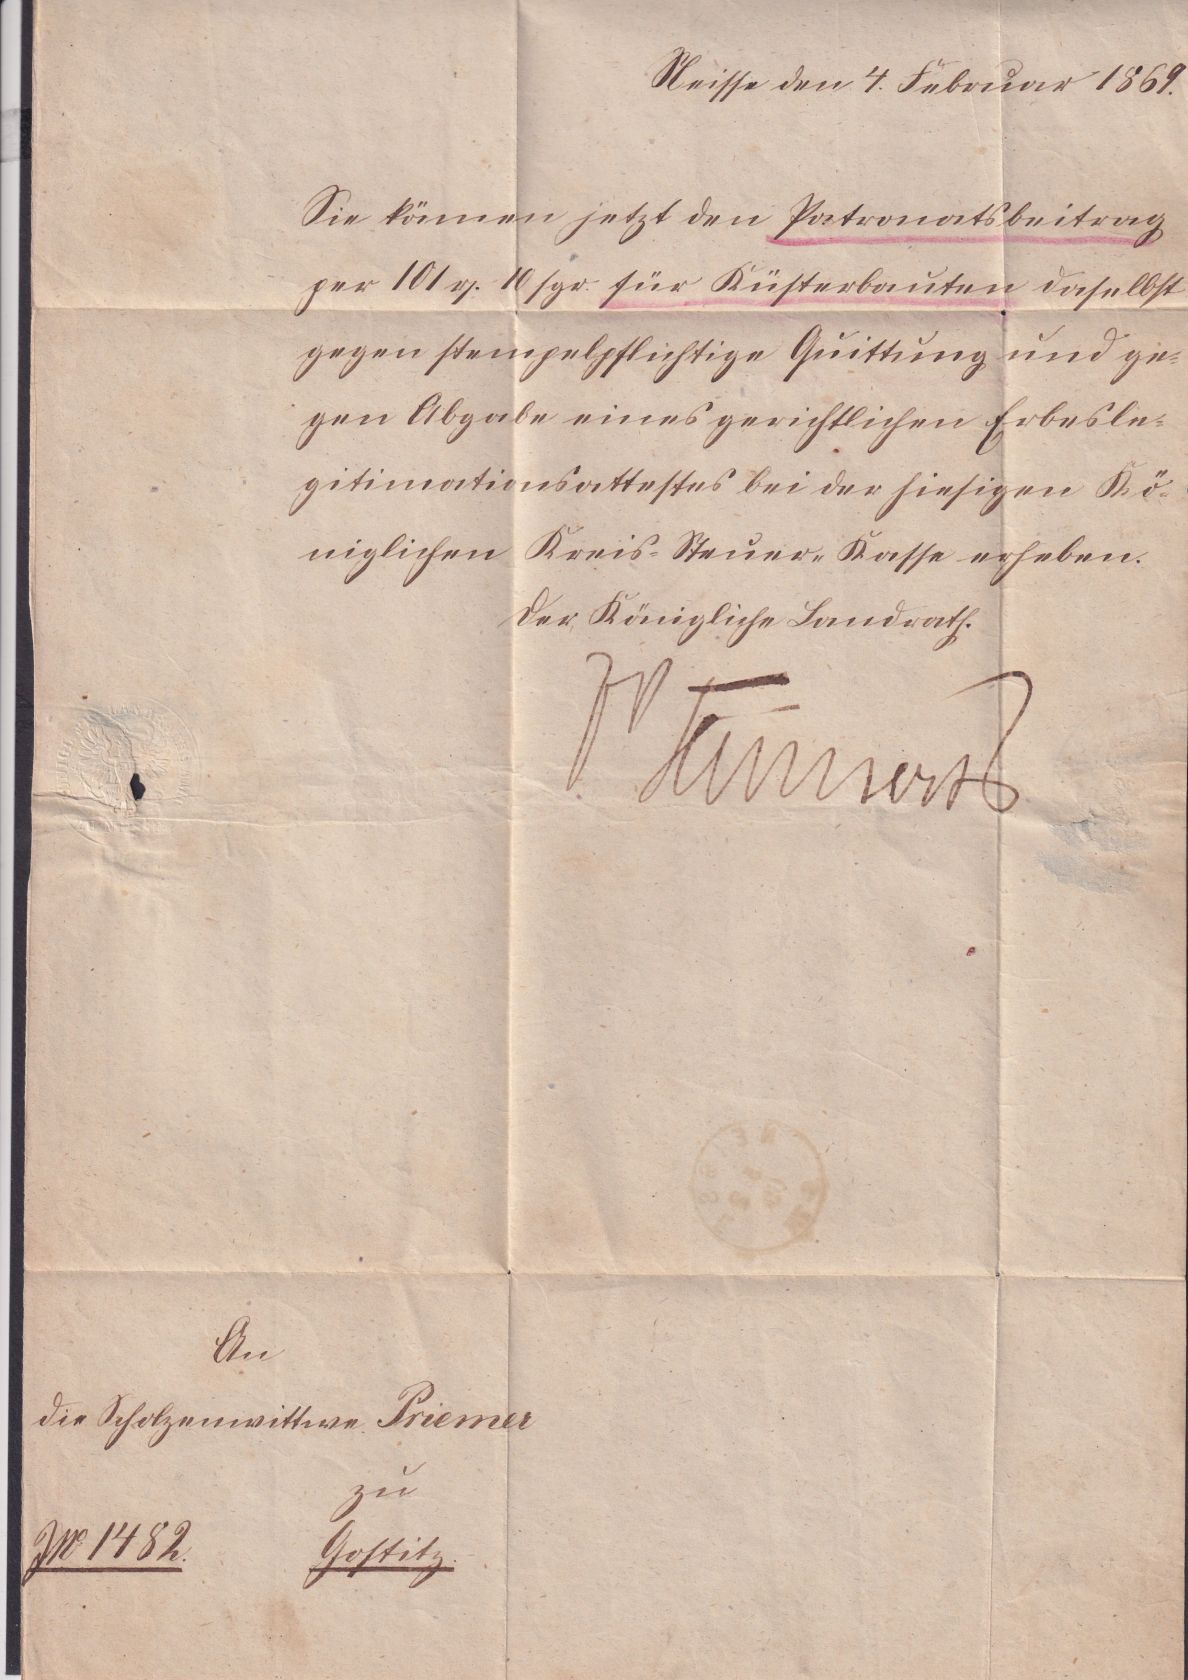 Neisse den 4. Februar 1869.
Sie können jetzt den Patronatsbeitrag
per 101 rf. 10 sgr. für Küsterbauten daselbst
gegen stempelpflichtige Quittung und ge-
gen Abgabe eines gerichtlichen Erbesle-
gitimationsattestes bei der hiesigen Kö-
niglichen Kreis-Steuer-Kasse erheben.
Der Königliche Landrath.
JV
An
die Scholzenwittwe Priemer
zu
JNo 1482. Gostitz.